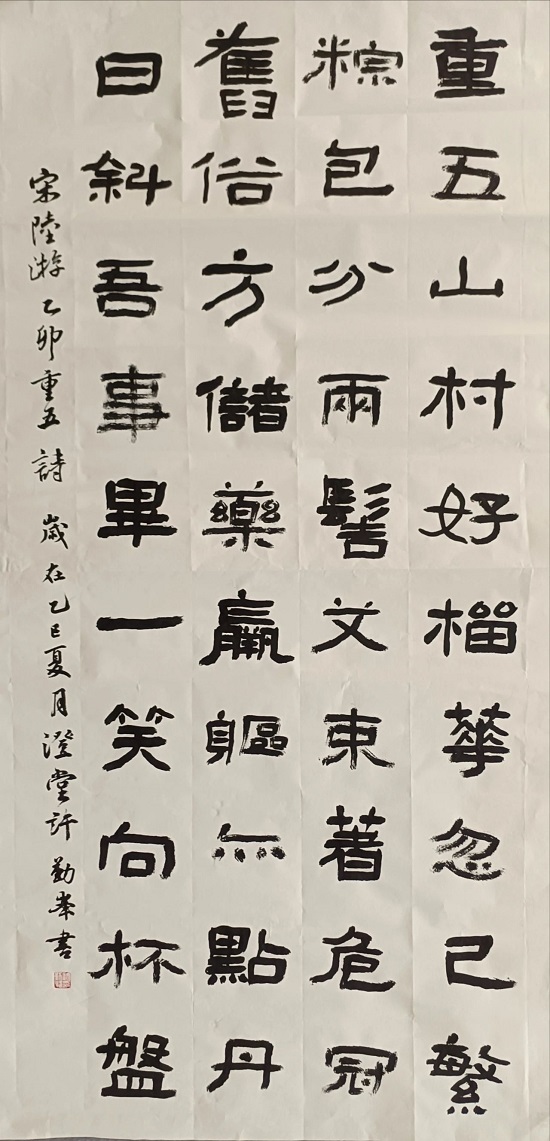 重五山村好榴華忽已繁
粽包分兩髻艾束著危冠
舊俗方儲藥羸軀亦點丹
日斜吾事畢一笑向杯盤
宋陸游乙卯重五詩歲在乙巳夏月澄堂許勤峯書